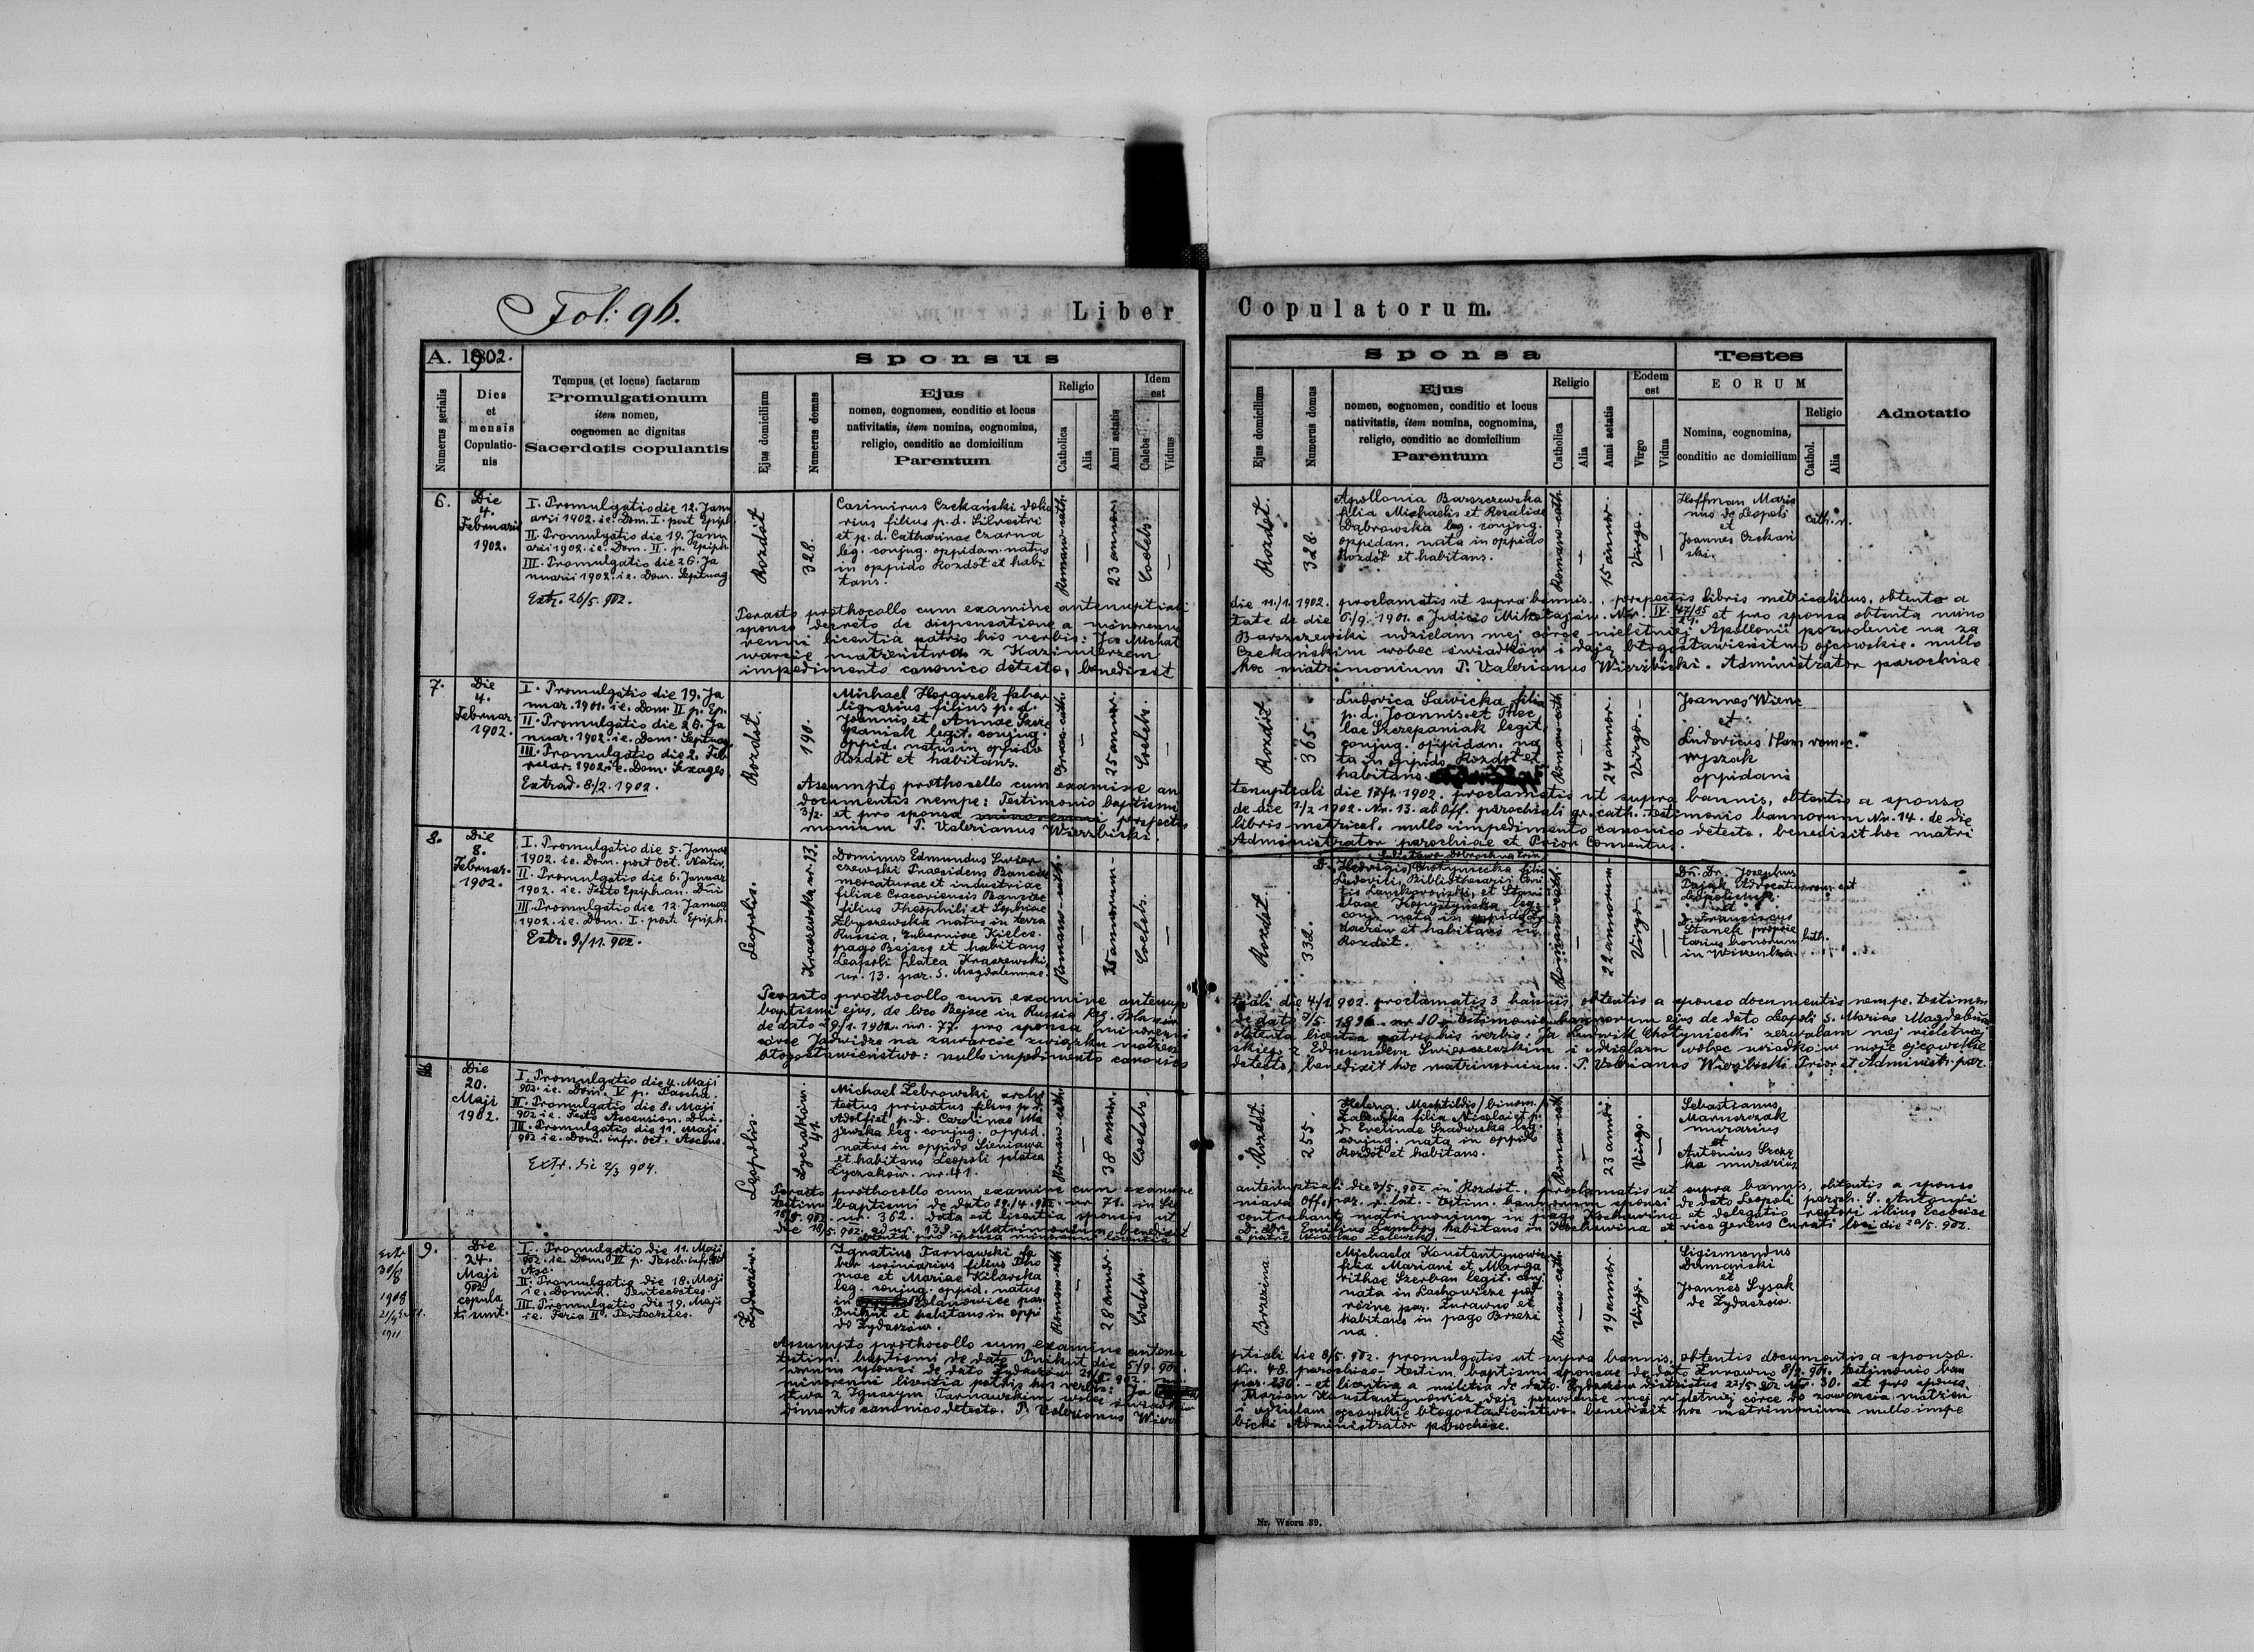 Fol: 96.
Liber Copulatorum.
A. 1902.
Numerus serialis
Dies et mensis Copulatio-nis
Tempus (et locus) factarum
Promulgationum
item nomen,
cognomen ac dignitas
Sacerdotis copulantis
Sponsus
Ejus domicilium
Numerus domus
Ejus
nomen, cognomen, conditio et locus
nativitatis, item nomina, cognomina,
religio, conditio ac domicilium
Parentum
Religio
Catholica
Alia
Anni aetatis
Idem est
Calebs
Viduus
Sponsa
Ejus domicilium
Numerus domus
Ejus
nomen, cognomen, conditio et locus
nativitatis, item nomina, cognomina,
religio, conditio ac domicilium
Parentum
Religio
Catholica
Alia
Anni aetatis
Eodem est
Virgo
Vidua
Testes
EORUM
Nomina, cognomina,
conditio ac domicilium
Religio
Cathol.
Alia
Adnotatio
6.
Die
4.
Februarii
1902.
I. Promulgatio die 12. Janu
arii 1902. i.e. Dom. I. post Epiph.
II. Promulgatio die 19. Janu
arii 1902. i.e. Dom. II. p. Epiph.
III. Promulgatio die 26. Ja
nuarii 1902. i.e. Dom. Septuag
Extr. 26/5. 902.
Rozdół
328.
Casimirus Czekański dolia
rius filius p. d. Silvestri
et p. d. Catharinae Czarna
leg. conjug. oppidan. natus
in oppido Rozdół et habi
tans.
Romano-cath.
23 annor.
Coelebs
Rozdół.
328.
Apollonia Barszczewska
filia Michaelis et Rozaliae
Dąbrowska leg. conjug.
oppidan. nata in oppido
Rozdół et habitans.
Romano-cath.
15 annor.
Virgo.
Hoffman Maria
nus de Leopoli
et
Joannes Czekań
ski.
cath. r.
Peracto prothocollo cum examine antenuptiali die 11./1. 1902. proclamatis ut supra bannis, perspectis libris metricalibus, obtento a
sponso decreto de dispensatione a minoren tate de die 6/9. 1901. a Judicio Mikołajów. Nr. IV. 47/85 et pro sponsa obtenta mino
renni licentia patris his verbis: Ja Michał Barszczewski udzielam mej córce nieletniej Apollonii pozwolenie na za
warcie małżeństwa z Kazimierzem Czekańskim wobec świadków i daję błogosławieństwo ojcowskie. nullo
impedimento canonico detecto, benedixit hoc matrimonium P. Valerianus Wierzbicki. Administrator parochiae
7.
Die
4.
Februar.
1902.
I. Promulgatio die 19. Ja
nuar. 1901. i.e. Dom. II p. Ep.
II. Promulgatio die 26. Ja
nuar. 1902. i.e. Dom. Septuag.
III. Promulgatio die 2. Feb
ruar. 1902. i.e. Dom. Sexages
Extrad. 8/2. 1902.
Rozdół.
190.
Michael Horgczek faber
lignarius filius p. d.
Joannis et Annae Szcze
paniak legit. conjug.
oppid. natus in oppido
Rozdół et habitans.
Graec. cath.
25 annor.
Coelebs.
Rozdół
365.
Ludovica Sawicka filia
p. d. Joannis et Thec
lae Szczepaniak legit.
conjug. oppidan. na
ta in oppido Rozdół et
habitans.
Romano-cath
24 annor.
Virgo.
Joannes Wiene
et
Ludovicus Ham rom. c.
ryszak
oppidani
Assumpto prothocollo cum examine an tenuptiali die 17/1. 1902. proclamatis ut supra bannis, obtentis a sponso
documentis nempe: Testimonio baptismi de die 1/2 1902. Nr. 13. ab Off. parochiali gr. cath. testimonio bannorum Nr. 14. de die
3/2. et pro sponsa perspectis libris metrical. nullo impedimento canonico detecto, benedixit hoc matri
monium P. Valerianus Wierzbicki. Administrator parochiae et Prior Conventus.
8.
Die
8.
Februar.
1902.
I. Promulgatio die 5. Januar
1902. i.e. Dom. post Oct. Nativ.
II. Promulgatio die 6. Januar
1902. i.e. Festo Epiphan. Dni
III. Promulgatio die 12. Januar
1902. i.e. Dom. I. post Epiph.
Extr. 9./11. 902.
Leopolis.
Kraszewska nr. 13.
Dominus Edmundus Świer
czewski Praesidens Bancae
mercaturae et industriae
filiae Cracoviensis Bancae
filius Theophili et Sophiae
Zbyszewska natus in terra
Russia, Guberniae Kielce.
pago Bejsce et habitans
Leopoli platea Kraszewski
nr. 13. par. S. Magdalennae.
Romano-cath.
annorum
Coelebs.
Rozdół
332.
Hedvigis Chotyniecka filia
Ludovici Bibliothecarii Comi
tis Lanckoroński, et Stani
slaae Kopystyńska leg.
conj. nata in oppido
daczów et habitans in
Rozdół.
Romano-cath.
22 annorum
Virgo.
Dn. Dr. Josephus
Pająk Advocatus rom. cat
Leopoliensis.
et
D. Franciscus
Stanek proprie
tarius bonorum
in
Peracto prothocollo cum examine antenup tiali die 4/1. 902. proclamatis 3 bannis, obtentis a sponso documentis nempe. testimon
baptismi ejus, de loco Bejsce in Russia de dato 3/5. 1896. nr 10. testimonio bannorum ejus de dato Leopoli S. Mariae Magdalena
de dato 29/1. 1902. nr. 77. pro sponsa minorenni obtenta licentia patris his verbis: Ja Ludwik Chotyniecki zezwalam mej nieletniej
córce Jadwidze na zawarcie związku małżeń skiego z Edmundem Świerczewskim i udzielam wobec świadków moje ojcowskie
błogosławieństwo: nullo impedimento canonico detecto, benedixit hoc matrimonium. P. Valerianus Wierzbicki Prior et Administr. par.
Die
20.
Maji
1902.
I. Promulgatio die 4. Maji
902. i.e. Dom. V p. Pascha.
II. Promulgatio die 8. Maji
902 i.e. Festo Ascension. Dni.
III. Promulgatio die 11. Maji
902 i.e. Dom. infr. Oct. Ascens.
Extr. die 2/3 904.
Leopolis.
Lyczaków.
41.
Michael Zebrowski archi
tectus privatus filius p. d.
Adolfi et p. d. Carolinae Ma
jewska leg. conjug. oppid.
natus in oppido Sieniawa
et habitans Leopoli platea
Lyczaków. nr. 41.
Romano-cath.
38 annor.
Coelebs.
Rozdół.
255.
Helena Mechtildis / binom. /
Zalewska filia Nicolai et p.
d. Evelinae Szadurska leg.
conjug. nata in oppido
Rozdół et habitans.
Roman-cath
23 annor.
Virgo.
Sebastianus
Marmurczak
murarius
et
Antonius Szczy
ka murarius
Peracto prothocollo cum examine cum examine antenuptiali die 3/5. 902 in Rozdół. proclamatis ut supra bannis, obtentis a sponso
testim. baptismi de dato 29./4. 902 nr. 71. in Sie niawa Off. par. r. lat. testim. bannorum sponsi de dato Leopoli paroch. S. Antonii
902. nr. 362. data est licentia sponsis ut contrahant matrimonium in pago Kochawina et delegatio rectori illius Ecclesiae
die 18/5. 902. ad nr. 138. Matrimonium benedixit Emilius habitans in Kochawina et vices gerens Curati loci die 20/5. 902.
obtenta pro sponsa minorenni licentia a patre Zalewski.
Extr
30/8
1908
1911
9.
Die
24.
Maji
902
copula
ti sunt.
I. Promulgatio die 11. Maji
902. i.e. Dom. VI p. Pasch. infr. Oct
Asc.
II. Promulgatio die 18. Maji
i.e. Domin. Pentecostes.
III. Promulgatio die 19. Maji
i.e. Feria II. Pentecostes.
Zydaczów.
Ignatius Tarnawski fa
ber scriniarius filius Tho
mae et Mariae Kilarska
leg. conjug. oppid. natus
in Wolanowice par.
Pnikut et habitans in oppi
do Zydaczów.
Romano-cath
28 annor.
Coelebs.
Brzezina.
Michaela Konstantynowicz
filia Mariani et Marga
rithae Szerban legit. conj.
nata in Lachowicze pod
różne par. Żurawno et
habitans in pago Brzezi
na.
Romano-cath.
19 annor.
Virgo.
Sigismundus
Domański
et
Joannes Lysak
de Zydaczów.
Assumpto prothocollo cum examine antenu ptiali die 8/5. 902. promulgatis ut supra bannis, obtentis documentis a sponso.
testim. baptismi de dato Pnikut die 5/9. 901. nr. 48. parochiae testim. baptismi sponsae de dato Żurawno 8/2. 901. testimonio ban
norum sponsi de dato Zydaczów 902. par. 230. et licentia a militia de dato. districtus 23/5. 902 30. et pro sponsa
minorenni licentia patris his verbis: Ja Marian Konstantynowicz, daję pozwolenie mej nieletniej córce do zawarcia małżeń
stwa z Ignacym Tarnawskim wobec świadków i udzielam ojcowskie błogosławieństwo. benedixit hoc matrimonium nullo impe
dimento canonico detecto. P. Valerianus Wierz bicki Administrator parochiae.
Nr. Wzoru 39.